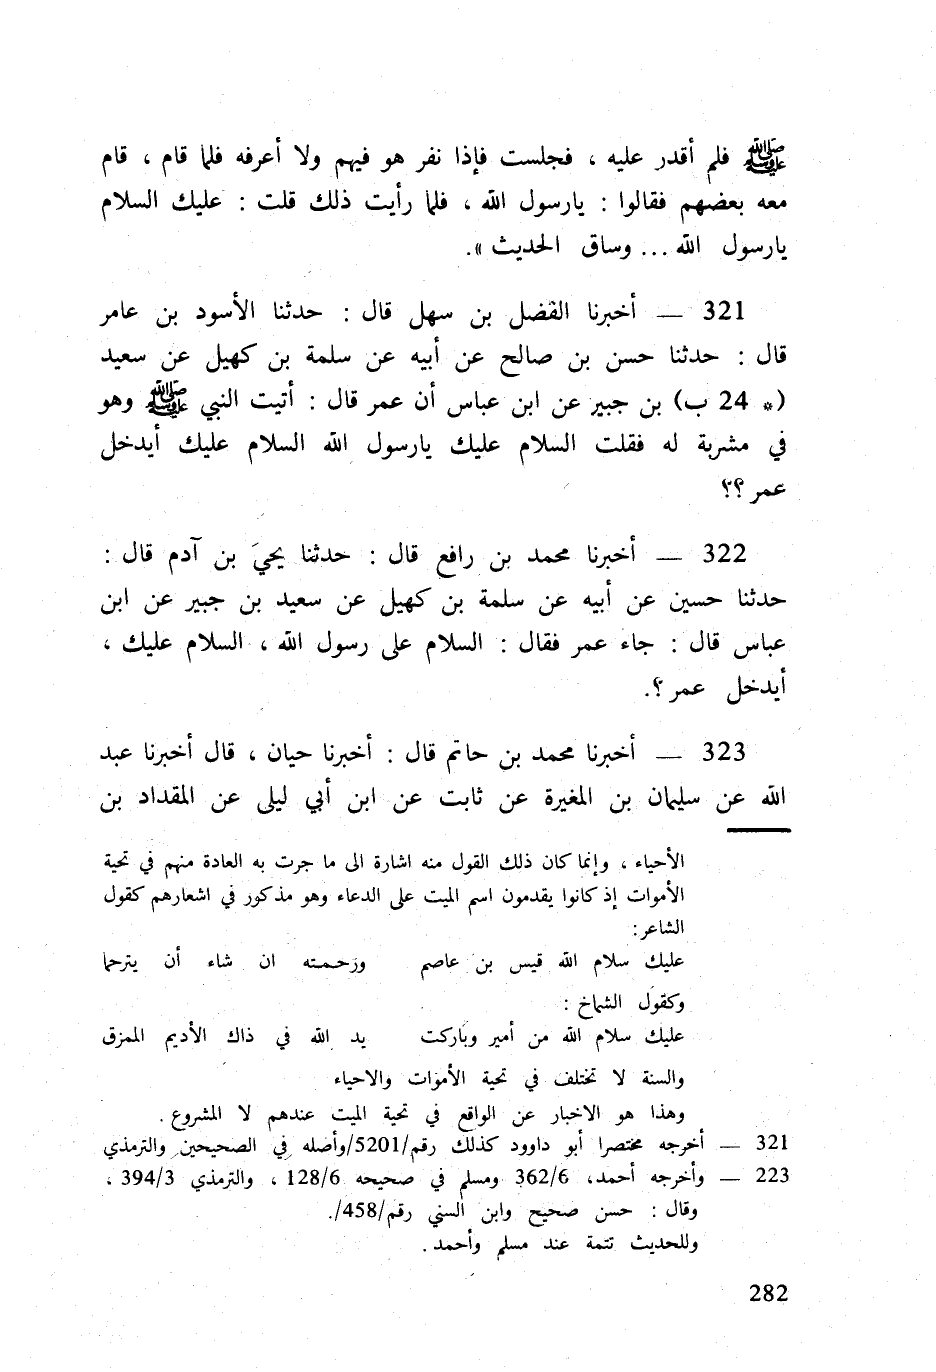 ﷺ فلم أقدر عليه ، فجلست فإذا نفر هو فيهم ولا أعرفه فلما قام ، قام
معه بعضهم فقالوا : يارسول الله ، فلما رأيت ذلك قلت : عليك السلام
يارسول الله ... وساق الحديث ».
321 — أخبرنا الفضل بن سهل قال : حدثنا الأسود بن عامر
قال : حدثنا حسن بن صالح عن أبيه عن سلمة بن كهيل عن سعيد
(* 24 ب) بن جبير عن ابن عباس أن عمر قال : أتيت النبي ﷺ وهو
في مشربة له فقلت السلام عليك يارسول الله السلام عليك أيدخل
عمر ؟؟
322 — أخبرنا محمد بن رافع قال : حدثنا يحيَ بن آدم قال :
حدثنا حسين عن أبيه عن سلمة بن كهيل عن سعيد بن جبير عن ابن
عباس قال : جاء عمر فقال : السلام على رسول الله ، السلام عليك ،
أيدخل عمر ؟.
323 — أخبرنا محمد بن حاتم قال : أخبرنا حيان ، قال أخبرنا عبد
الله عن سليمان بن المغيرة عن ثابت عن ابن أبي ليلى عن المقداد بن
الأحياء ، وإنما كان ذلك القول منه اشارة الى ما جرت به العادة منهم في تحية
الأموات إذ كانوا يقدمون اسم الميت على الدعاء وهو مذكور في اشعارهم كقول
الشاعر:
عليك سلام الله قيس بن عاصم ورحمته ان شاء أن يترحما
وكقول الشماخ :
عليك سلام الله من أمير وباركت يد الله في ذاك الأديم الممزق
والسنة لا تختلف في تحية الأموات والاحياء
وهذا هو الاخبار عن الواقع في تحية الميت عندهم لا المشروع .
321 — أخرجه مختصرا أبو داوود كذلك رقم/5201/وأصله في الصحيحين والترمذي
223 — وأخرجه أحمد، 362/6 ومسلم في صحيحه 128/6 ، والترمذي 394/3 ،
وقال : حسن صحيح وابن السني رقم/458/.
وللحديث تتمة عند مسلم وأحمد .
282